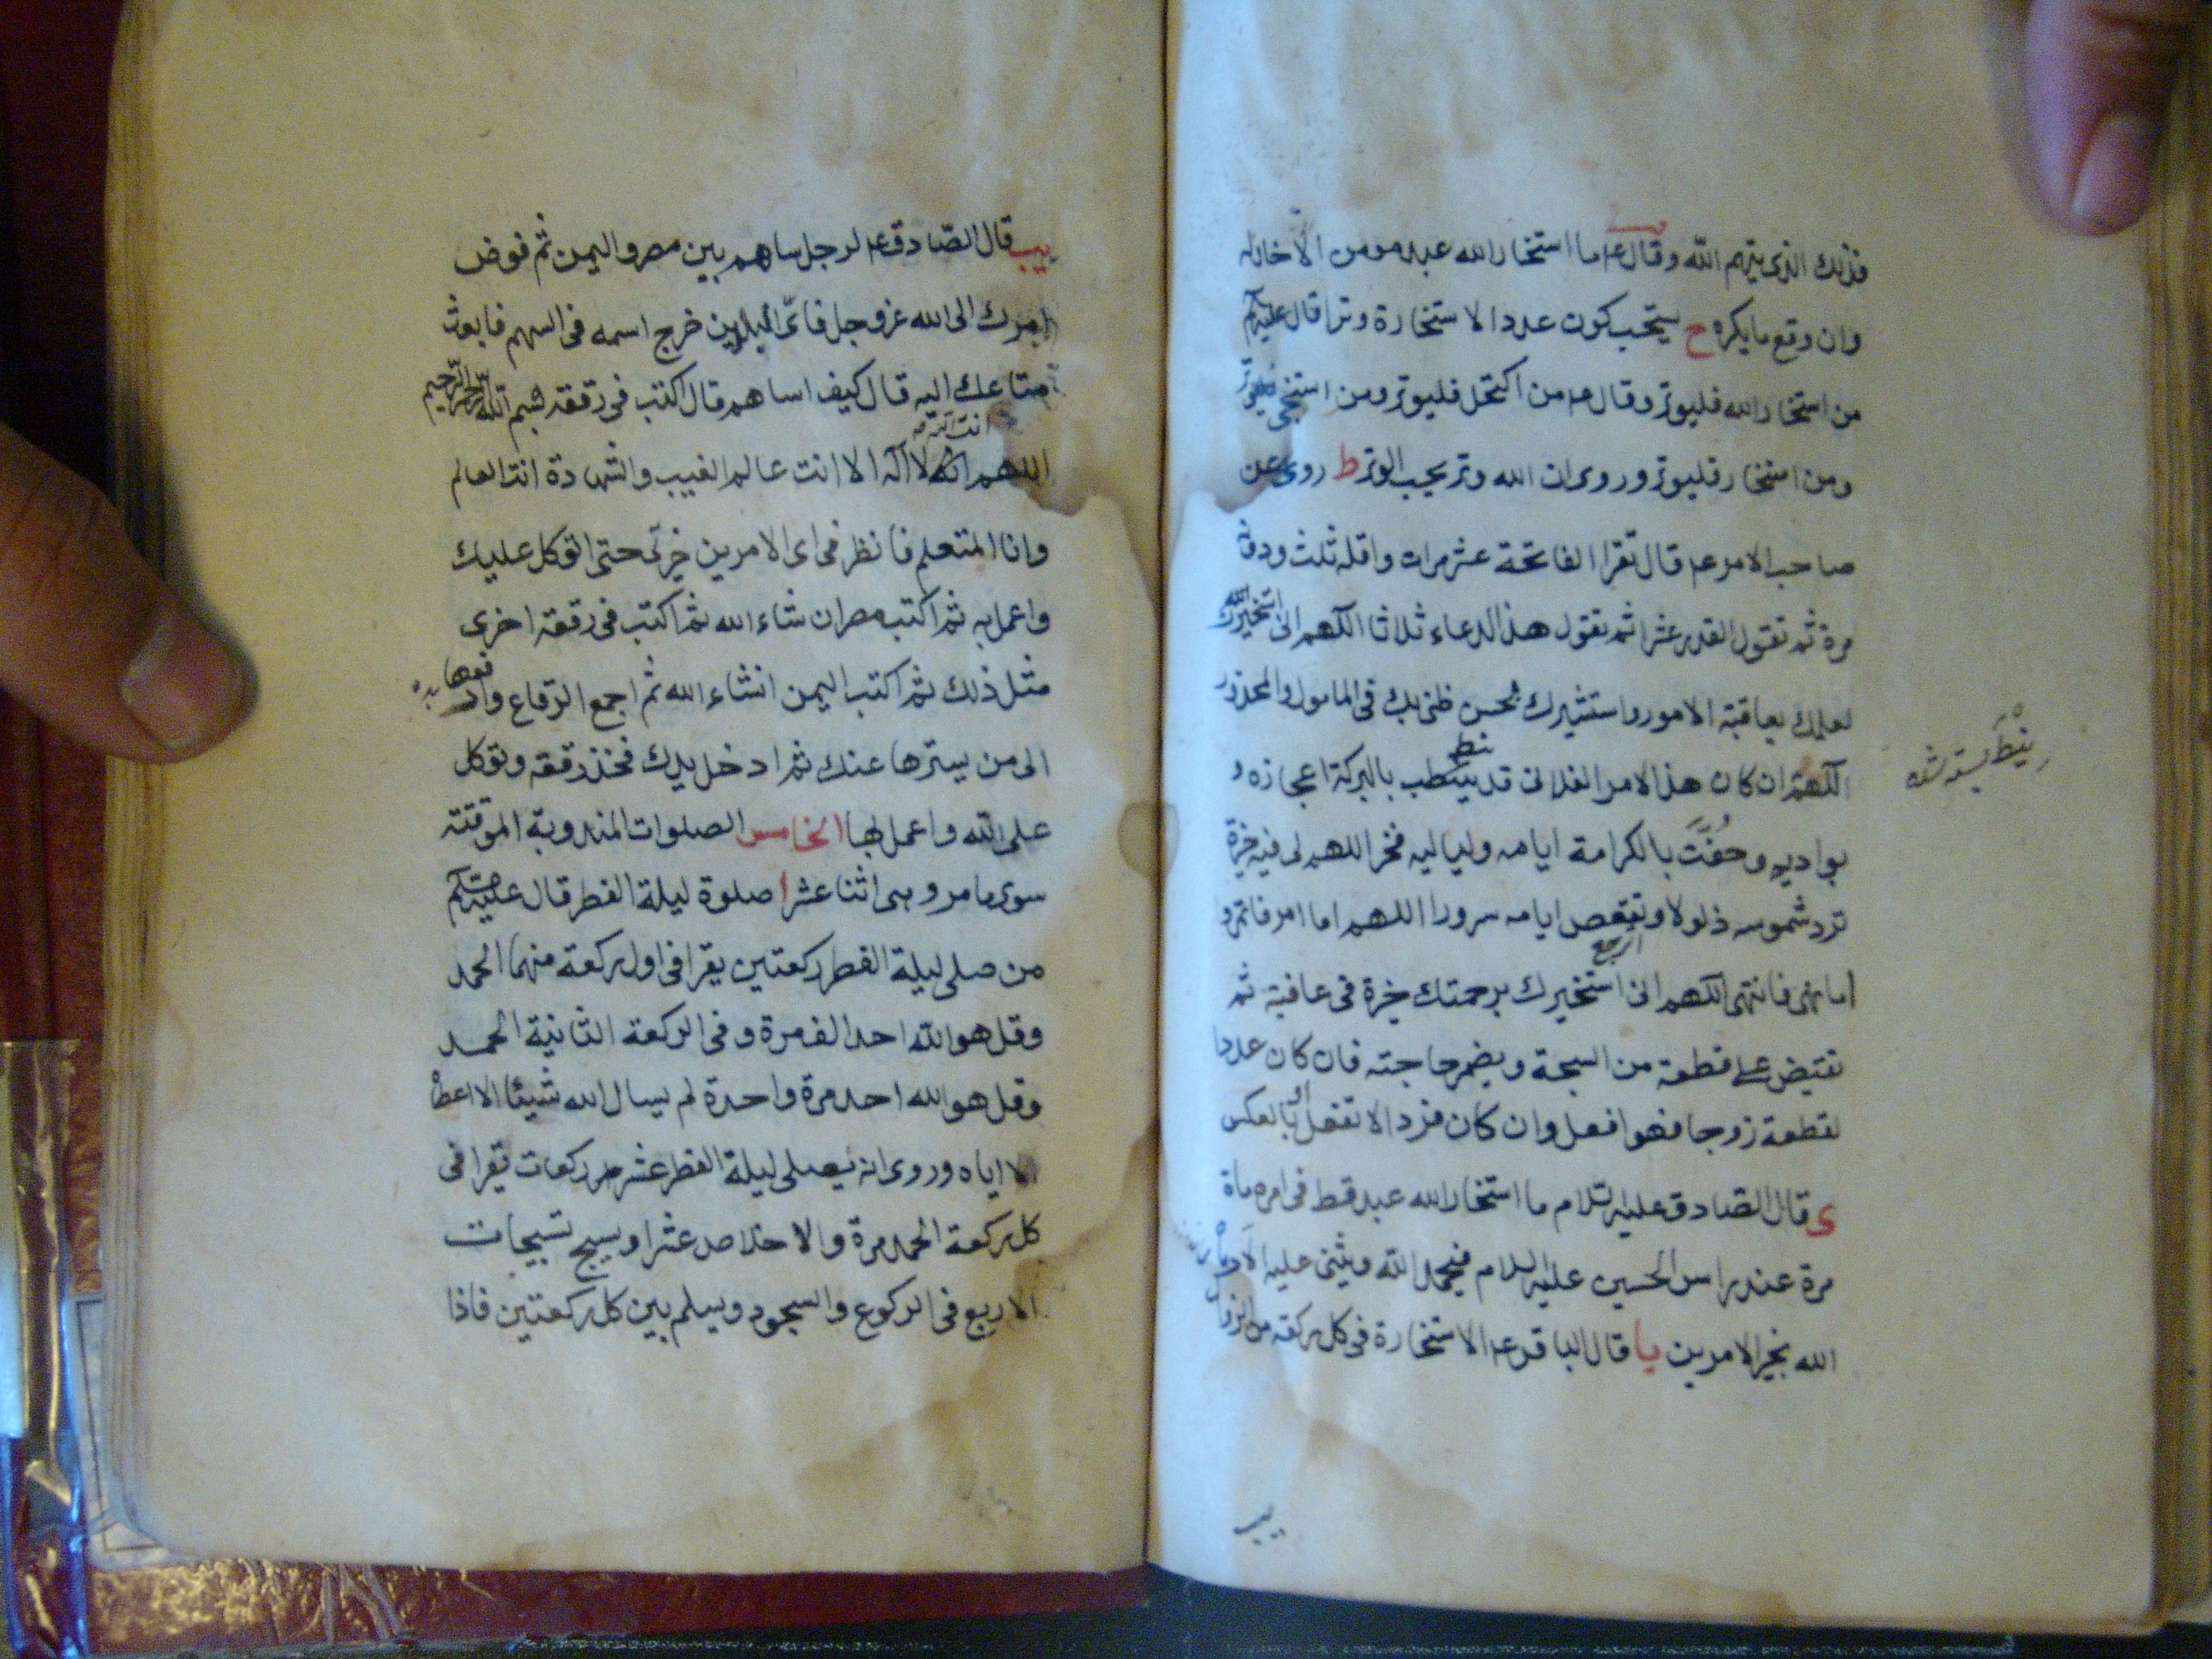 فذلك الذى يتهم الله وقال ع ما استخار الله عبد مومن الا خار له
وان وقع ما يكره ح يستحب كون عدد الاستخارة وترا قال عليه
من استخار الله فليوتر وقال ع من اكتحل فليوتر ومن استنجى فليوتر
ومن استخار فليوتر وروى ان الله وتر يحب الوتر ط روى عن
صاحب الامر ع قال تقرا الفاتحة عشر مرات واقله ثلث ودونه
مرة ثم تقول القدر عشرا ثم تقول هذا الدعاء ثلاثا اللهم انى استخيرك
لعلمك بعاقبة الامور واستشيرك لحسن ظنى بك فى المامول والمحذور
اللهم ان كان هذا الامر الفلانى قد نيطت بالبركة اعجازه و
بواديه وحفت بالكرامة ايامه ولياليه فخر اللهم لى فيه خيرة
ترد شموسه ذلولا وتقعص ايامه سرورا اللهم اما امر فاتمر و
اما نهى فانتهى اللهم انى استخيرك برحمتك خيرة فى عافية ثم
تقبض على قطعة من السبحة ويضمر حاجته فان كان عدد
لقطعة زوجا فهو افعل وان كان فردا لا تفعل او بالعكس
ى قال الصادق عليه السلام ما استخار الله عبد قط فى امره ماة
مرة عند راس الحسين عليه السلام فيحمد الله ويثنى عليه الا رماه
الله بخير الامرين يا قال الباقر ع الاستخارة فى كل ركعة من الزوال
يب
يب قال الصادق ع لرجل ساهم بين مصر واليمن ثم فوض
امرك الى الله عز وجل فاى البلدين خرج اسمه فى السهم فابعث
متاعك اليه قال كيف اساهم قال اكتب فى رقعة بسم الله الرحمن الرحيم
اللهم انت الله لا اله الا انت عالم الغيب والشهادة انت العالم
وانا المتعلم فانظر فى اى الامرين خير لى حتى اتوكل عليك
واعمل به ثم اكتب مصر ان شاء الله ثم اكتب فى رقعة اخرى
مثل ذلك ثم اكتب اليمن انشاء الله ثم اجمع الرقاع وادفعها
الى من يسترها عنك ثم ادخل يدك فخذ رقعة وتوكل
على الله واعمل بها الخامس الصلوات المندوبة الموقتة
سوى ما مر وهى اثنا عشر ا صلوة ليلة الفطر قال عليه السلام
من صلى ليلة الفطر ركعتين يقرا فى اول ركعة منهما الحمد
وقل هو الله احد الف مرة وفى الركعة الثانية الحمد
وقل هو الله احد مرة واحدة لم يسال الله شيئا الا اعطاه
الا اياه وروى انه يصلى ليلة الفطر عشر ركعات يقرا فى
كل ركعة الحمد مرة والاخلاص عشرا ويسبح تسبيحات
الاربع فى الركوع والسجود ويسلم بين كل ركعتين فاذا